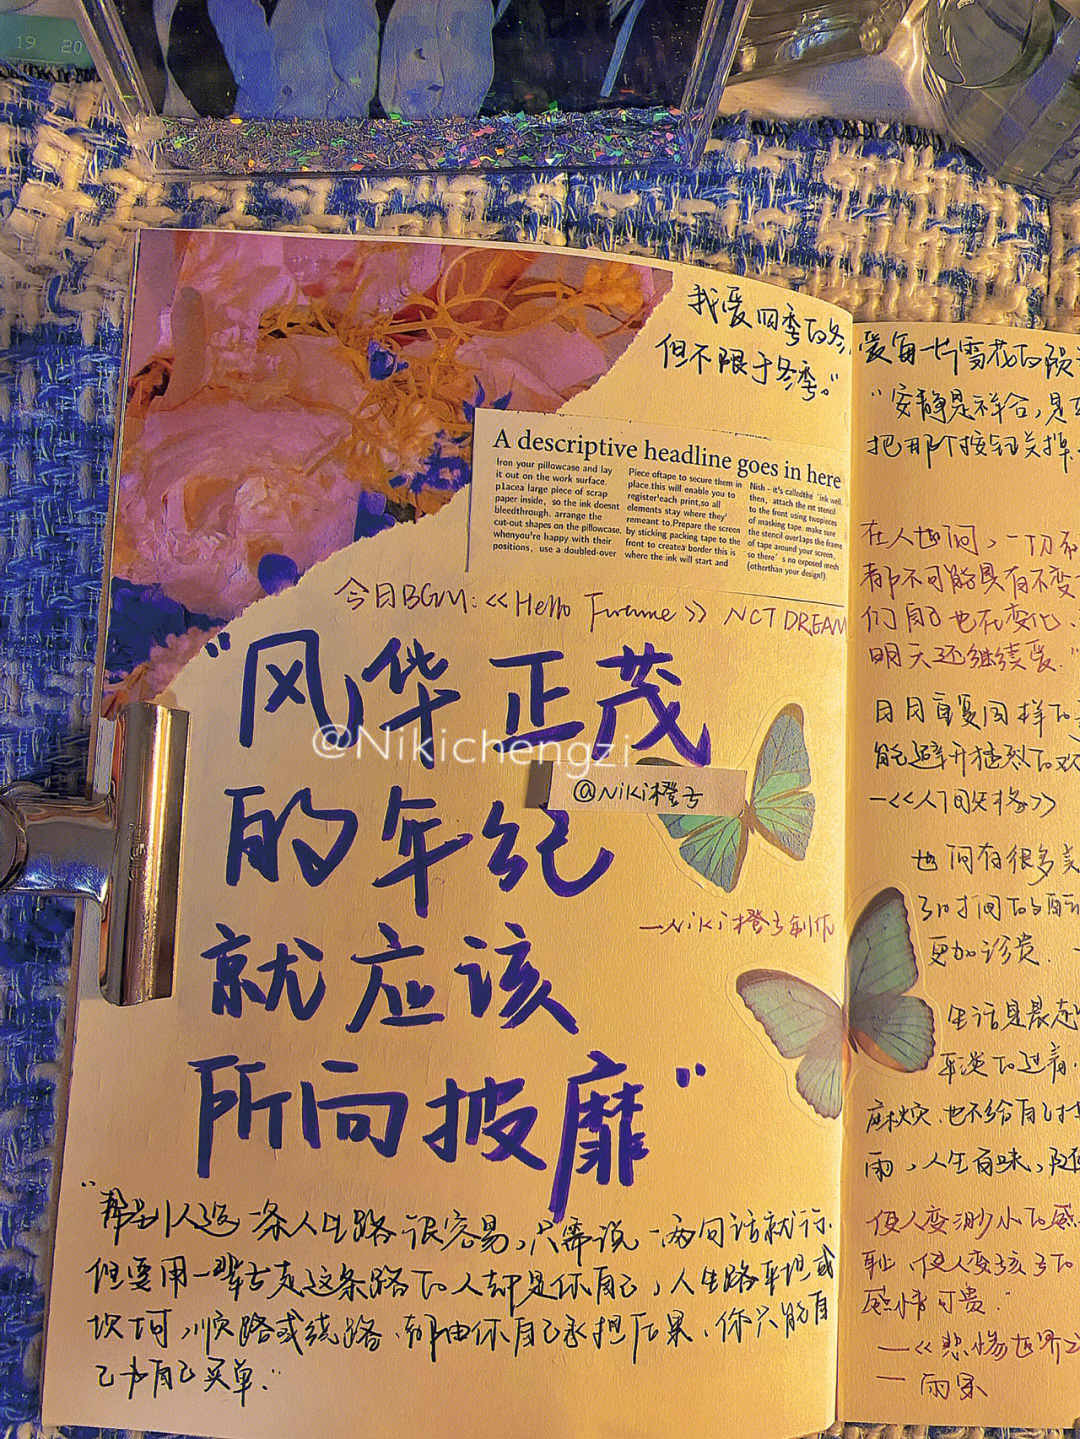 19 20
我爱四季的冬,
但不限于冬季。"
A descriptive headline goes in here
Iron your pillowcase and lay
it out on the work surface.
placea large piece of scrap
paper inside, so the ink doesnt
bleedthrough. arrange the
cut-out shapes on the pillowcase.
whenyou're happy with their
positions, use a doubled-over
Piece oftape to secure them in
place.this will enable you to
register'each print,so all
elements stay where they'
remeant to.Prepare the screen
by sticking packing tape to the
front to create border this is
where the ink will start and
Nish - it's calledthe 'ink well.
then, attach the rst stencil
to the front using twopieces
of masking tape. make sure
the stencil overlaps the frame
of tape around your screen,
so there's no exposed mesh
(otherthan your design!).
今日BGM:《Hello Future》 NCT DREAM
"风华正茂
@Nikichengzi
@Niki橙子
的年纪
—Niki橙子制作
就应该
所向披靡"
"帮别人选一条人生路很容易,只需说一两句话就行.
但要用一辈子走这条路的人却是你自己,人生路平坦或
坎坷,顺路或绕路,都由你自己承担后果,你只能自
己为自己买单."
爱每一片雪花的陨
"安静是祥合,是
把那个按钮关掉.
在人世间,一切
都不可能具有不变
们自己也在变化.
明天还继续爱."
日日重复同样的
能避开猛烈的欢
—《人间失格》
也间有很多美
时间的
更加珍贵.
生活是最
平淡的过着.
麻烦.也不给自己
雨,人生百味,
使人变渺小的感
耻,使人变孩子的
感情可贵."
—《悲惨世界
—雨果